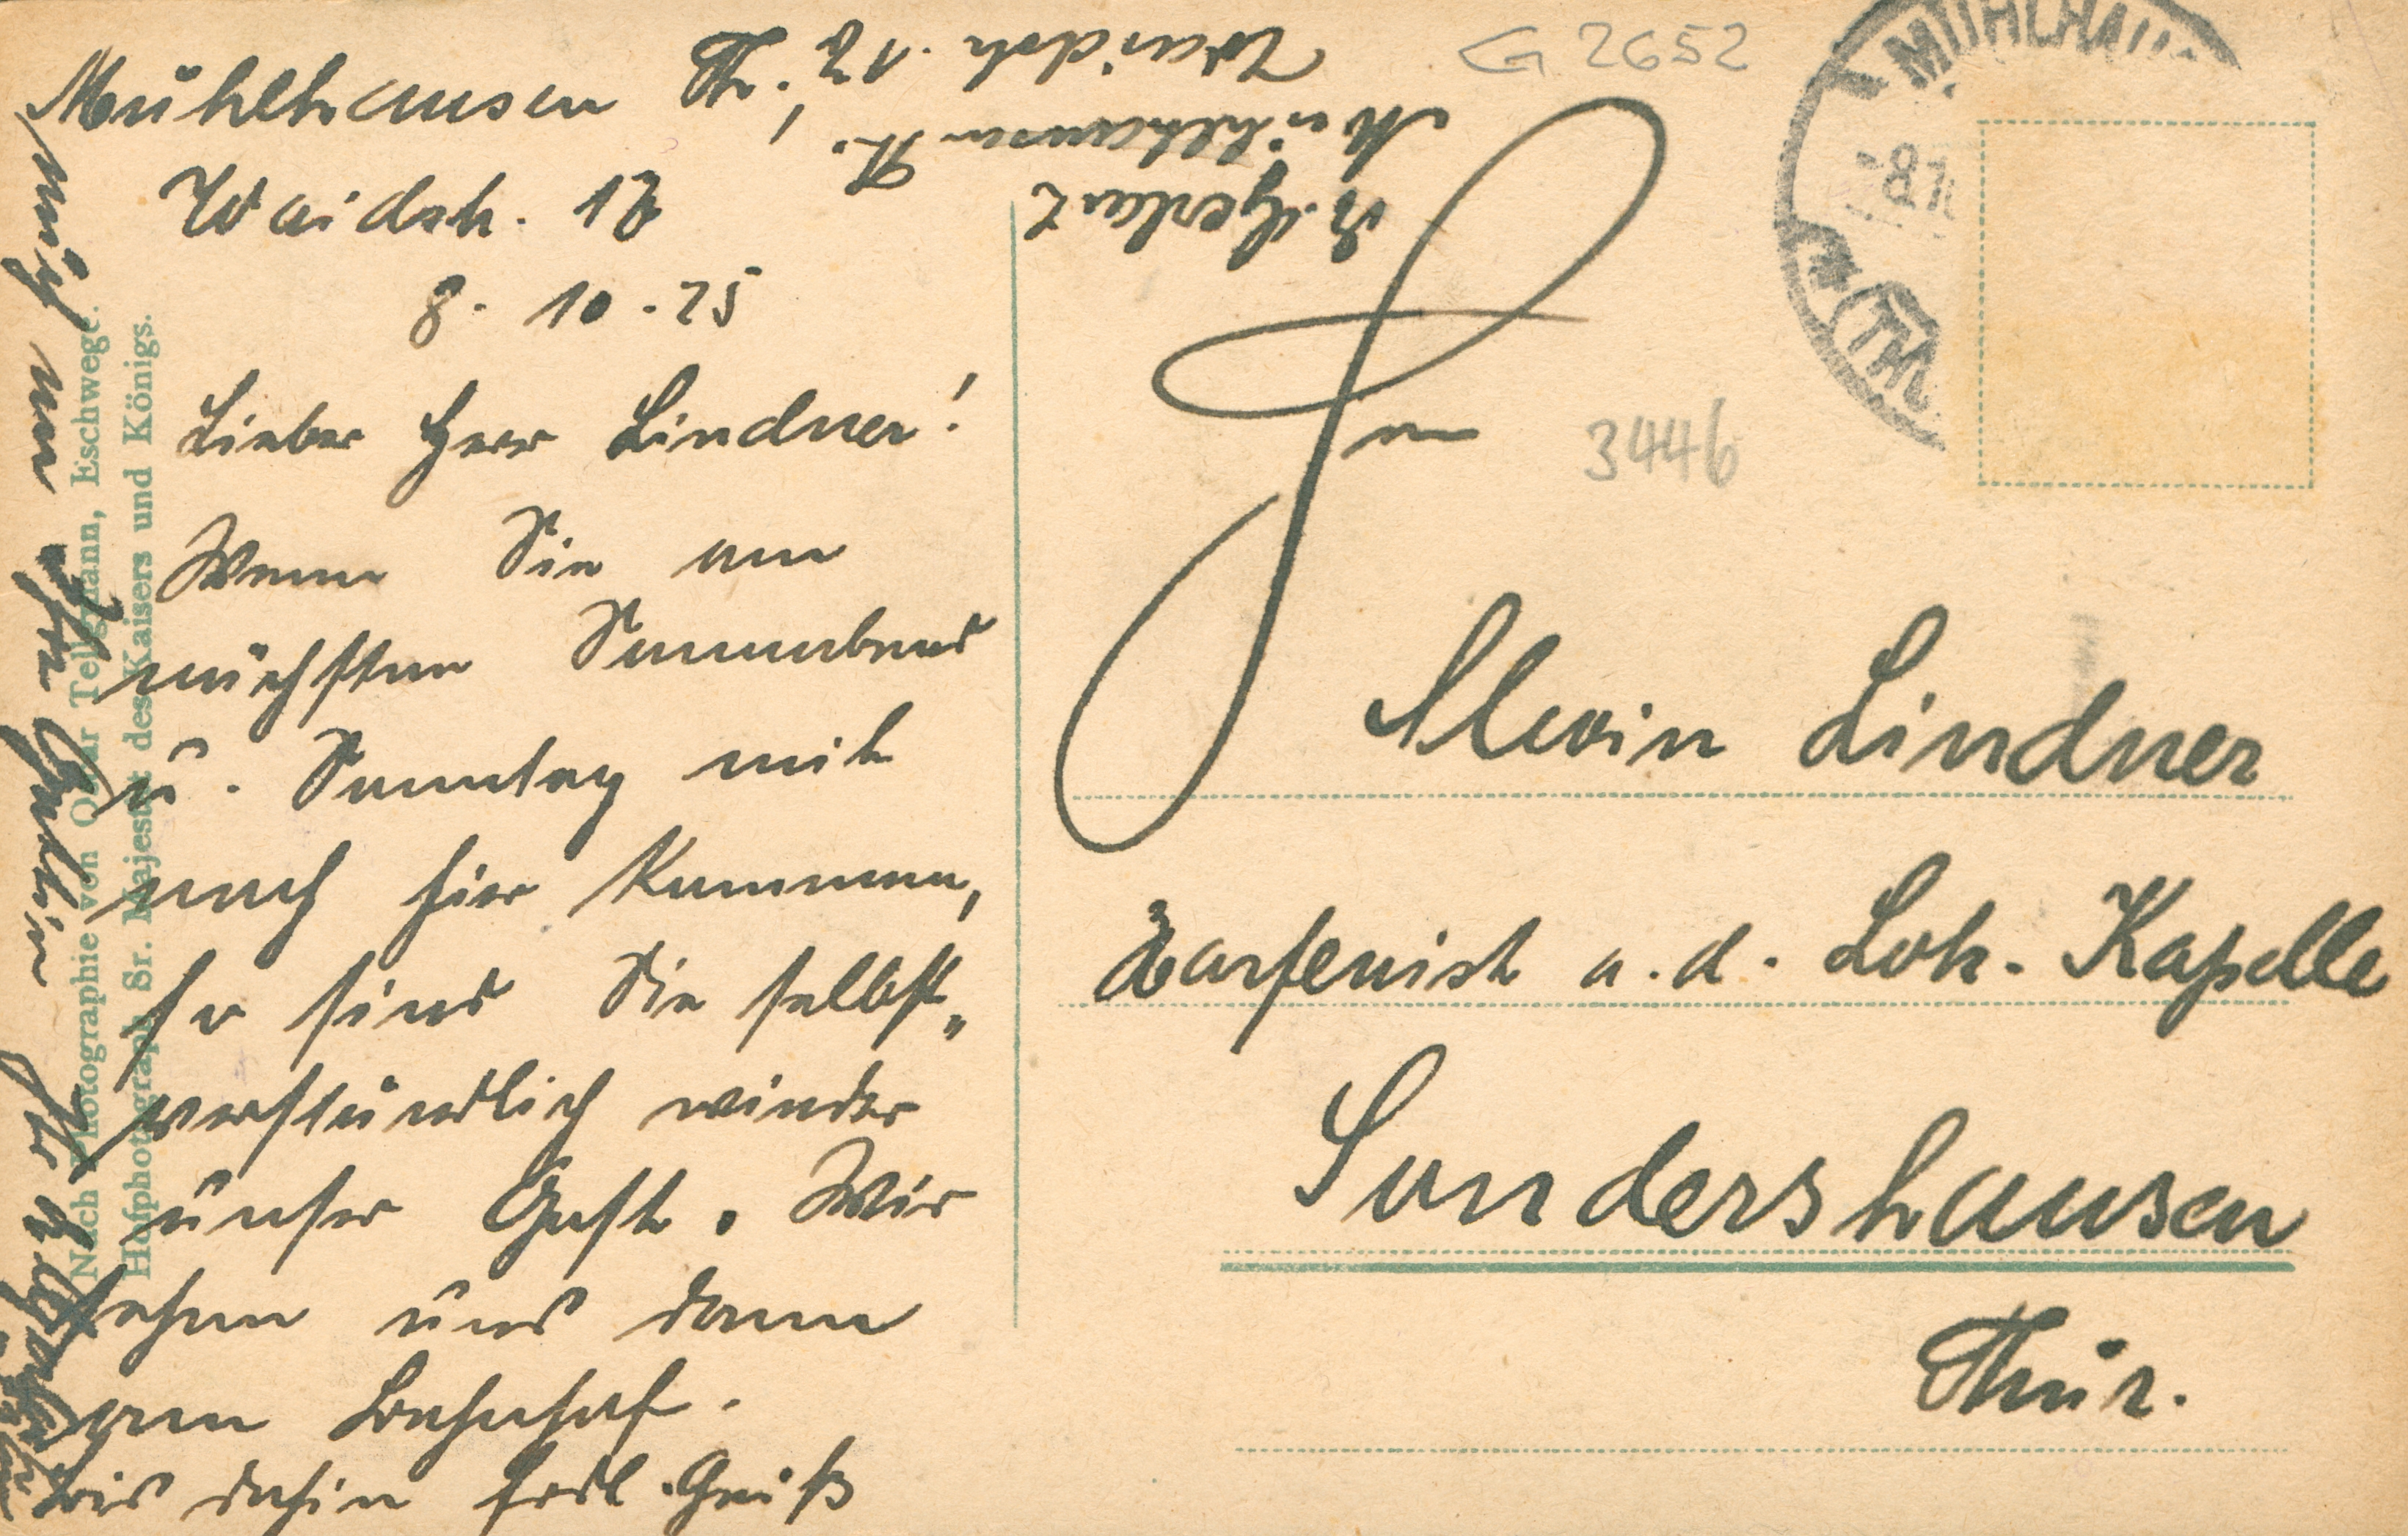 Mühlhausen Th.,
Waidstr. 17
8. 10. 25
Lieber Herr Lindner!
Wenn Sie am
nächsten Sonnabend
u. Sonntag mit
nach hier kommen,
so sind Sie selbst„
verständlich wieder
unser Gast. Wir
sehen uns dann
am Bahnhof.
Bis dahin frdl. Gruß
auch an Ihre Gattin
Ihr R. Gerlart
R. Gerlart
Mühlhausen Th.
Waidstr. 17
G 2652
MÜHLHAU
-8.1
(TH
Herrn
3446
Alwin Lindner
Harfenist a. d. Loh-Kapelle
Sondershausen
Thür.
Nach Photographie von Oscar Tellgmann, Eschwege.
Hofphotograph Sr. Majestät des Kaisers und Königs.